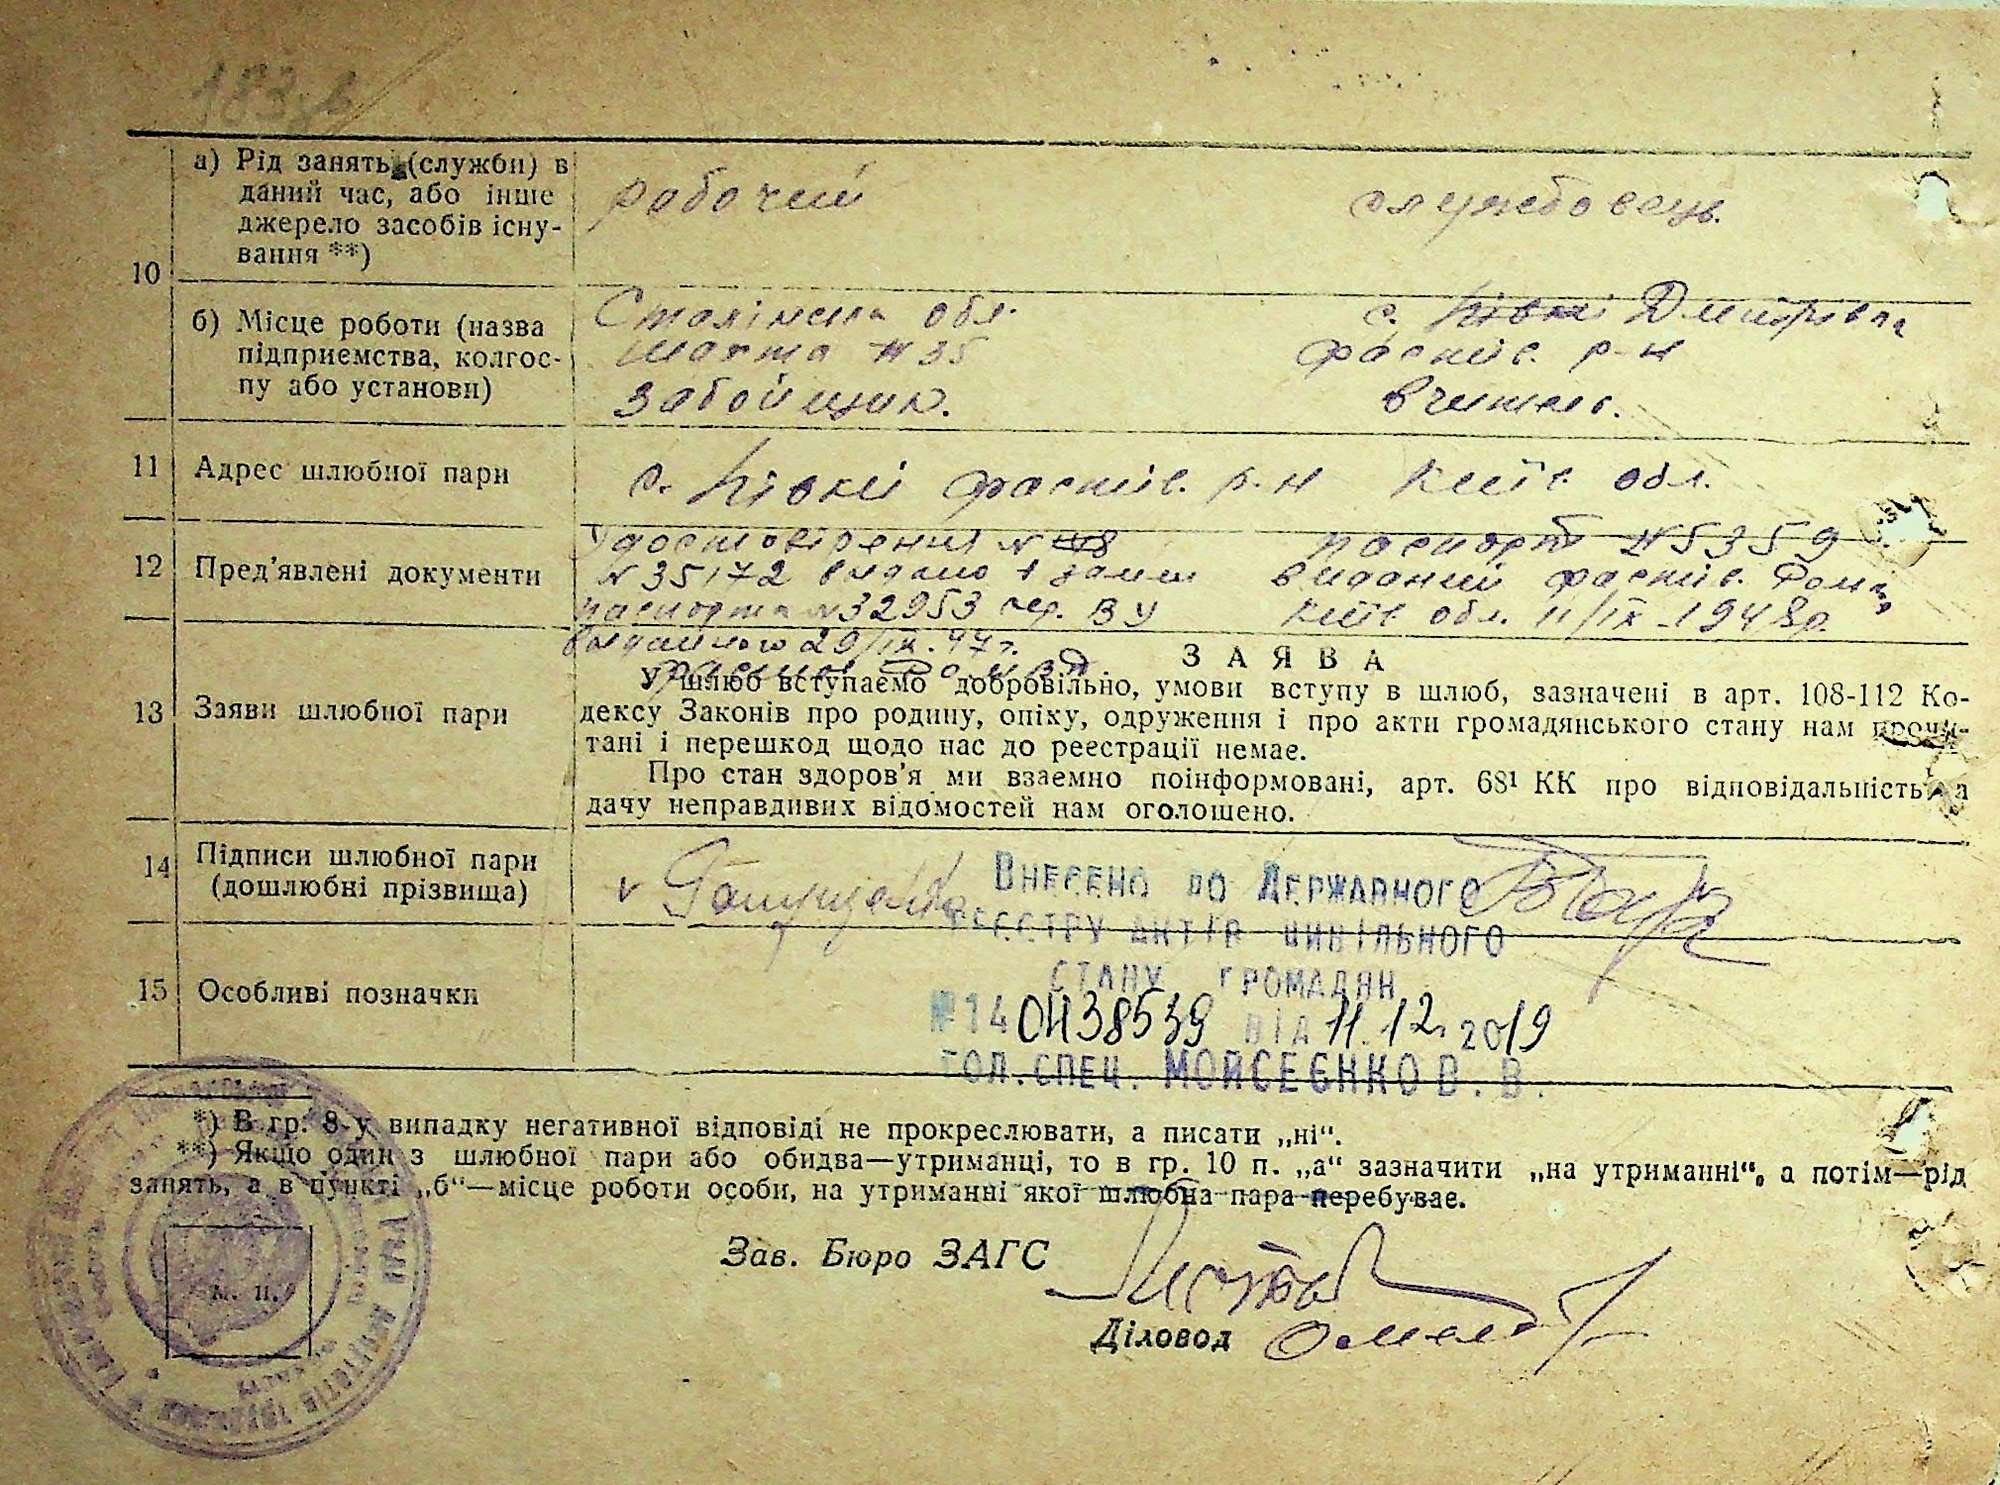 183
10
а) Рід занять (служби) в
даний час, або інше
джерело засобів існу-
вання **)
рабочий
службовець.
б) Місце роботи (назва
підприємства, колгос-
пу або установи)
Сталінська обл.
шахта №35
забойщик.
с. Дмитрівка
Фастів. р-н
вчитель.
11 Адрес шлюбної пари
с. Пивні Фастів. р-н Київ. обл.
12 Пред’явлені документи
Удостовірения №
№ 35172 выдано в замен
паспорта №32953 сер. ВУ
выданного 29/IX.47г.
паспорт №5359
виданий Фастів.
Київ обл. 11/IX-1948р.
13 Заяви шлюбної пари
ЗАЯВА
У шлюб вступаємо добровільно, умови вступу в шлюб, зазначені в арт. 108-112 Ко-
дексу Законів про родину, опіку, одруження і про акти громадянського стану нам прочи-
тані і перешкод щодо нас до реєстрації немає.
Про стан здоров’я ми взаємно поінформовані, арт. 68¹ КК про відповідальність за
дачу неправдивих відомостей нам оголошено.
14 Підписи шлюбної пари
(дошлюбні прізвища)
ВНЕСЕНО ДО ДЕРЖАВНОГО
РЕЄСТРУ АКТІВ ЦИВІЛЬНОГО
СТАНУ ГРОМАДЯН
№14 0438539 ВІД 11.12.2019
ГОЛ.СПЕЦ. МОЙСЕЄНКО В. В.
15 Особливі позначки
*) В гр. 8 у випадку негативної відповіді не прокреслювати, а писати „ні“.
**) Якщо один з шлюбної пари або обидва—утриманці, то в гр. 10 п. „а“ зазначити „на утриманні“, а потім—рід
занять, а в пункті „б“—місце роботи особи, на утриманні якої шлюбна пара перебуває.
м. п.
Зав. Бюро ЗАГС
Діловод